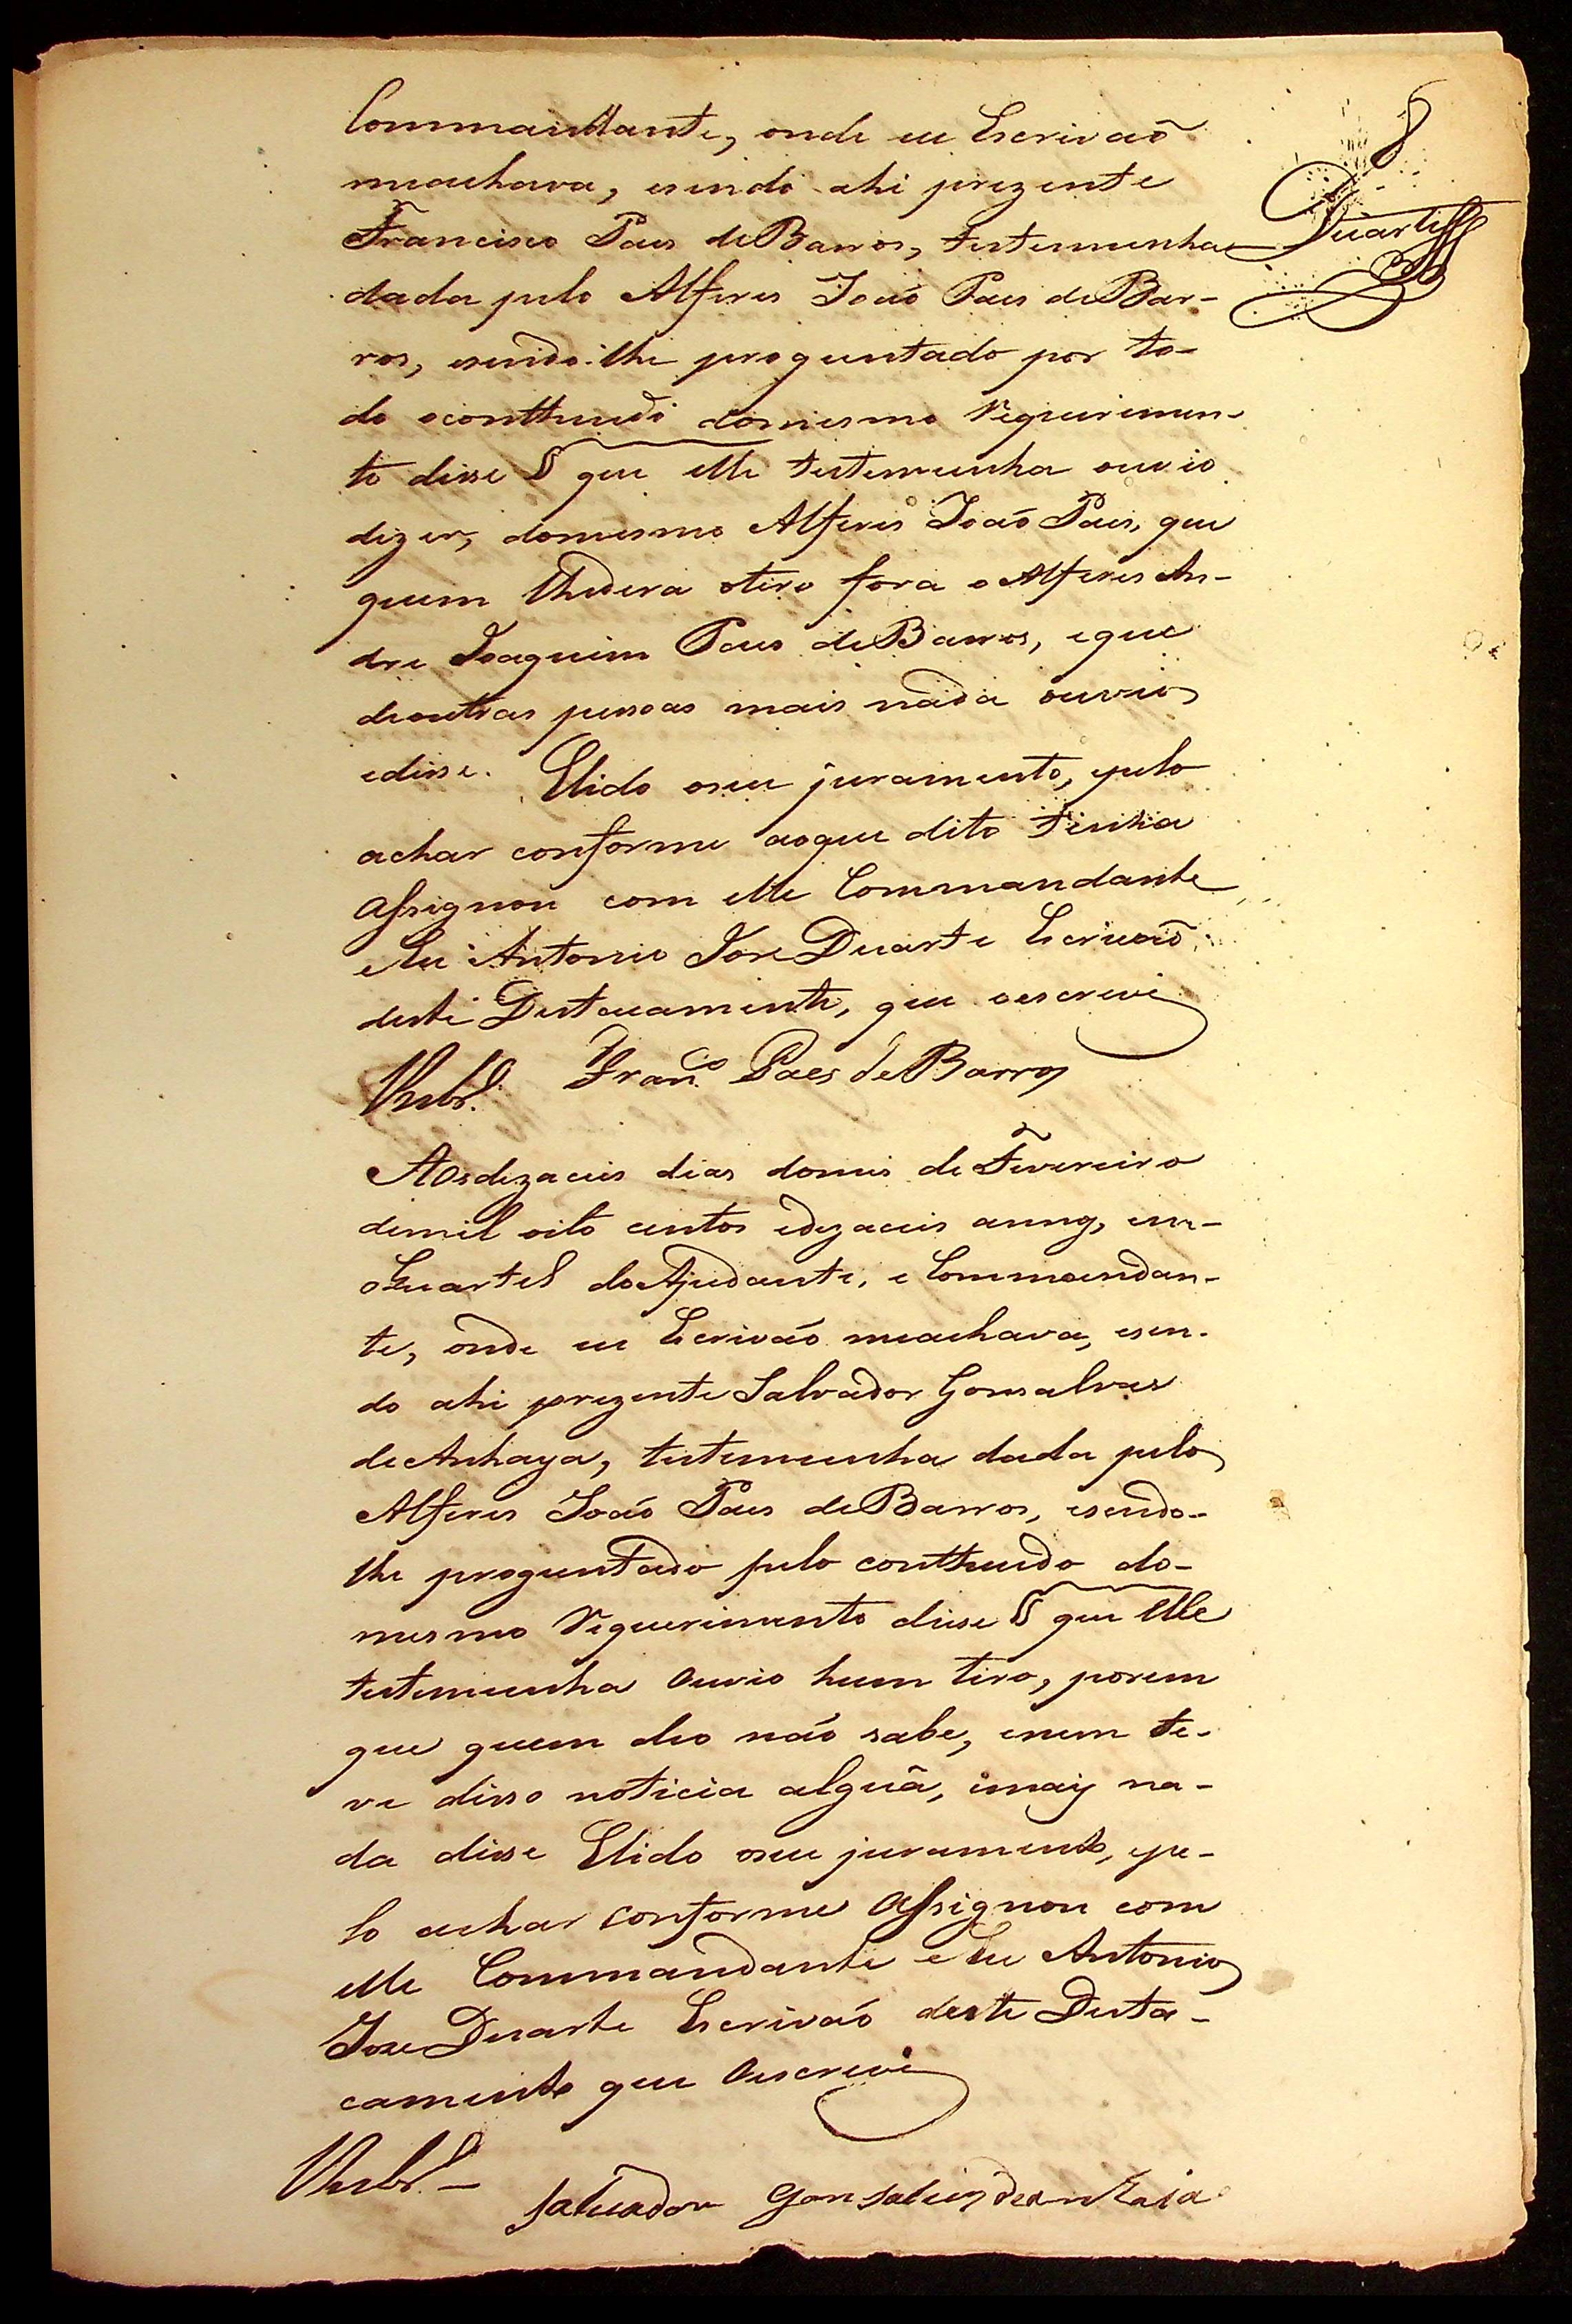 8
Duarte
Commandante, onde eu Escrivaõ
meachava, esendo ahi prezente
Francisco Paes deBarros, testemunha
dada pelo Alferes Joaõ Paes deBar-
ros, esendo-lhe proguntado por to-
do oconttheudo domesmo Requerimen-
to disse § que elle testemunha ouvio
dizer, domesmo Alferes Joaõ Paes, que
quem lhedera otiro fora o Alferes An-
dre Joaquim Paes deBarros, eque
deoutras pessoas mais nada ouvio,
edisse. Elido oseu juramento, epelo
achar conforme aoque dito tinha
assignou com elle Commandante
eEu Antonio Jose Duarte Escrivaõ
deste Destacamento, que oescrevi
Franco. Paes de Barros
Aosdezaceis dias domes de Fevereiro
demil oito centos edezaceis annos, em-
oQuartel doAjudante, e Commandan-
te, onde eu Escrivaõ meachava, esen-
do ahi prezente Salvador Gonsalves
deAnhaya, testemunha dada pelo
Alferes Joaõ Paes deBarros, esendo-
lhe proguntado pelo conttheudo do-
mesmo Requerimento disse § que elle
testemunha ouvio hum tiro, porem
que quem deo naõ sabe, enem te-
ve disso noticia alguã, emais na-
da disse Elido oseu juramento, epe-
lo achar conforme assignou com
elle Commandante eEu Antonio
Jose Duarte Escrivaõ deste Desta-
camento que oescrevi
Salvador Gonsalves deAnhaia